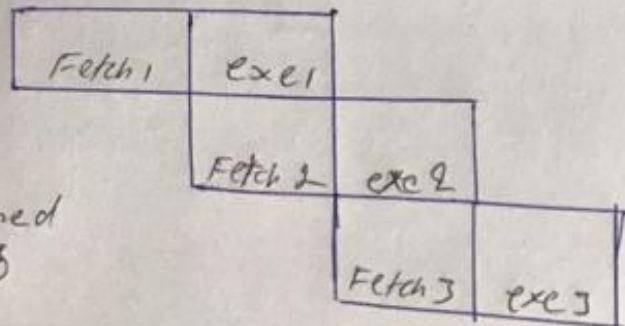 Fetch 1 exe 1
Fetch 2 exe 2
Fetch 3 exe 3